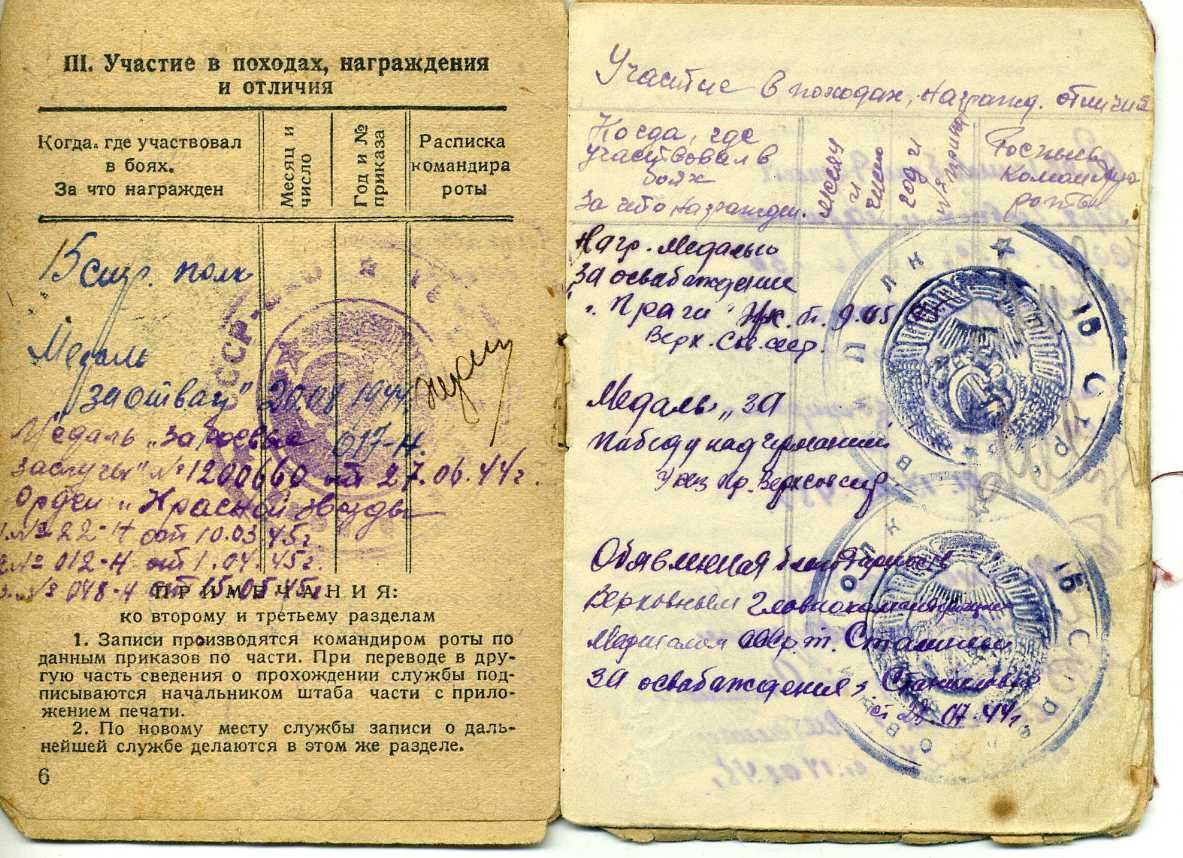 III. Участие в походах, награждения
и отличия
Когда, где участвовал
в боях.
За что награжден
Месяц и
число
Год и №
приказа
Расписка
командира
роты
15 стр. полк
Медаль
"За отвагу" 20.08 1944
617-н.
Медаль "За боевые
заслуги" № 1200660 от 27.06.44г.
Орден "Красной Звезды
№ 22-н от 10.03.45г
№ 012-н от 1.04.45г.
№ 048-н от 15.05.45г.
ПРИМЕЧАНИЯ:
ко второму и третьему разделам
1. Записи производятся командиром роты по
данным приказов по части. При переводе в дру-
гую часть сведения о прохождении службы под-
писываются начальником штаба части с прило-
жением печати.
2. По новому месту службы записи о даль-
нейшей службе делаются в этом же разделе.
6
Участие в походах, Награжд. отличия
Когда, где
участвовал в
боях
За что награжден.
месяц
и
число
год и
№ приказа
Роспись
командира
роты
Нагр. Медалью
За освабаждение
"Праги" Ук. 9.
Верх. Сов. ссср.
Медаль "За
Пабеду над германией
Указ Пр. Верх
Обявленная благодарность
Верховным Главнокомандующим
Маршалом т. Сталиным
За освабаждения г. Станиславь
от 28.07.44г.
ПОЛК
15 СТР